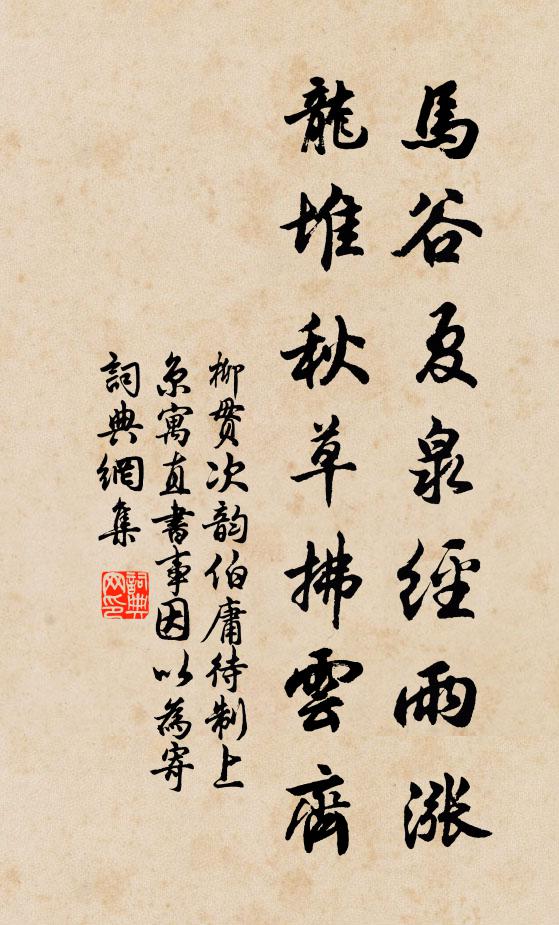 馬谷夏泉經雨漲
龍堆秋草拂雲齊
柳貫次韵伯庸待制上
京寓直書事因以為寄
詞典網集
詞典
网印